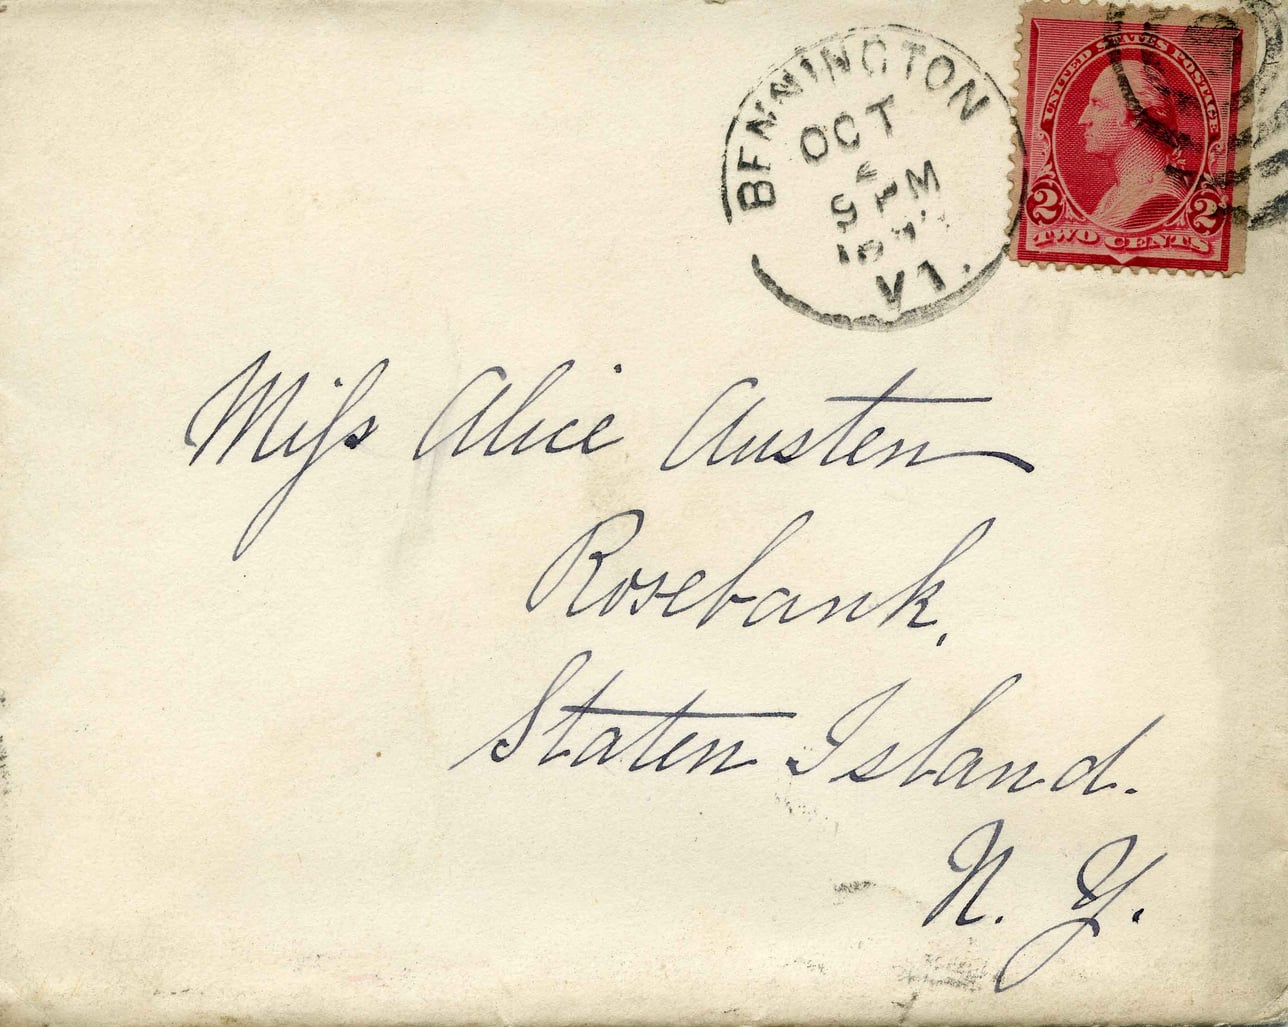 BENNINGTON
OCT
PM
VT.
UNITED STATES POSTAGE
2 2
TWO CENTS
Miss Alice Austen
Rosebank,
Staten Island.
N. Y.